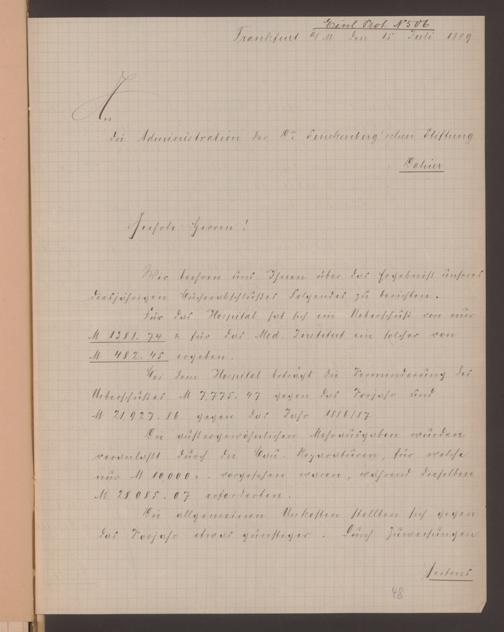 Einl Prot. N 506
Frankfurt a/M den 15 Juli 1889
An
die Administration der Dr. Senckenberg'schen Stiftung
Dahier
Geehrte Herren!
Wir beehren uns Ihnen über das Ergebniß unseres
diesjährigen Bücherabschlußes Folgendes zu berichten.
Für das Hospital hat sich ein Ueberschuß von nur
M 1281. 74 & für das Med. Institut ein solcher von
M 482. 45 ergeben.
Bei dem Hospital beträgt die Verminderung des
Ueberschußes M 7,775. 47 gegen das Vorjahr und
M 21,927. 86 gegen das Jahr 1886/87
Die außergewöhnlichen Mehrausgaben wurden
veranlaßt durch die Bau-Reparaturen, für welche
nur M 10,000.- vorgesehen waren, während dieselben
M 28085. 07 erforderten.
Die allgemeinen Unkosten stellten sich gegen
das Vorjahr etwas günstiger. Durch Zuweisungen
Seitens
48